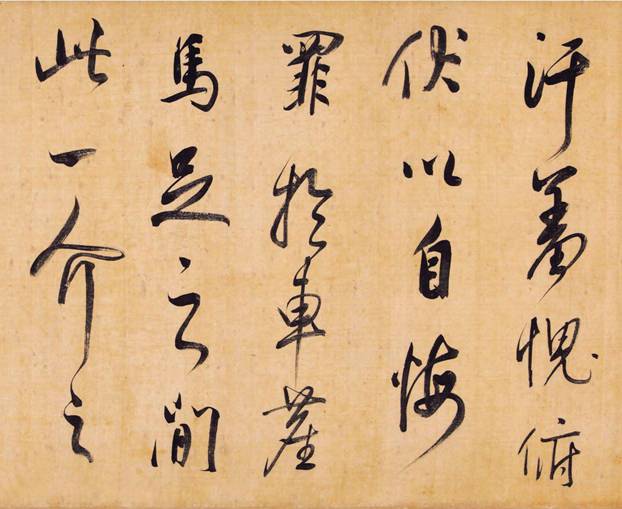 汗羞愧俯
伏以自悔
罪於車塵
馬足之間
此一介之